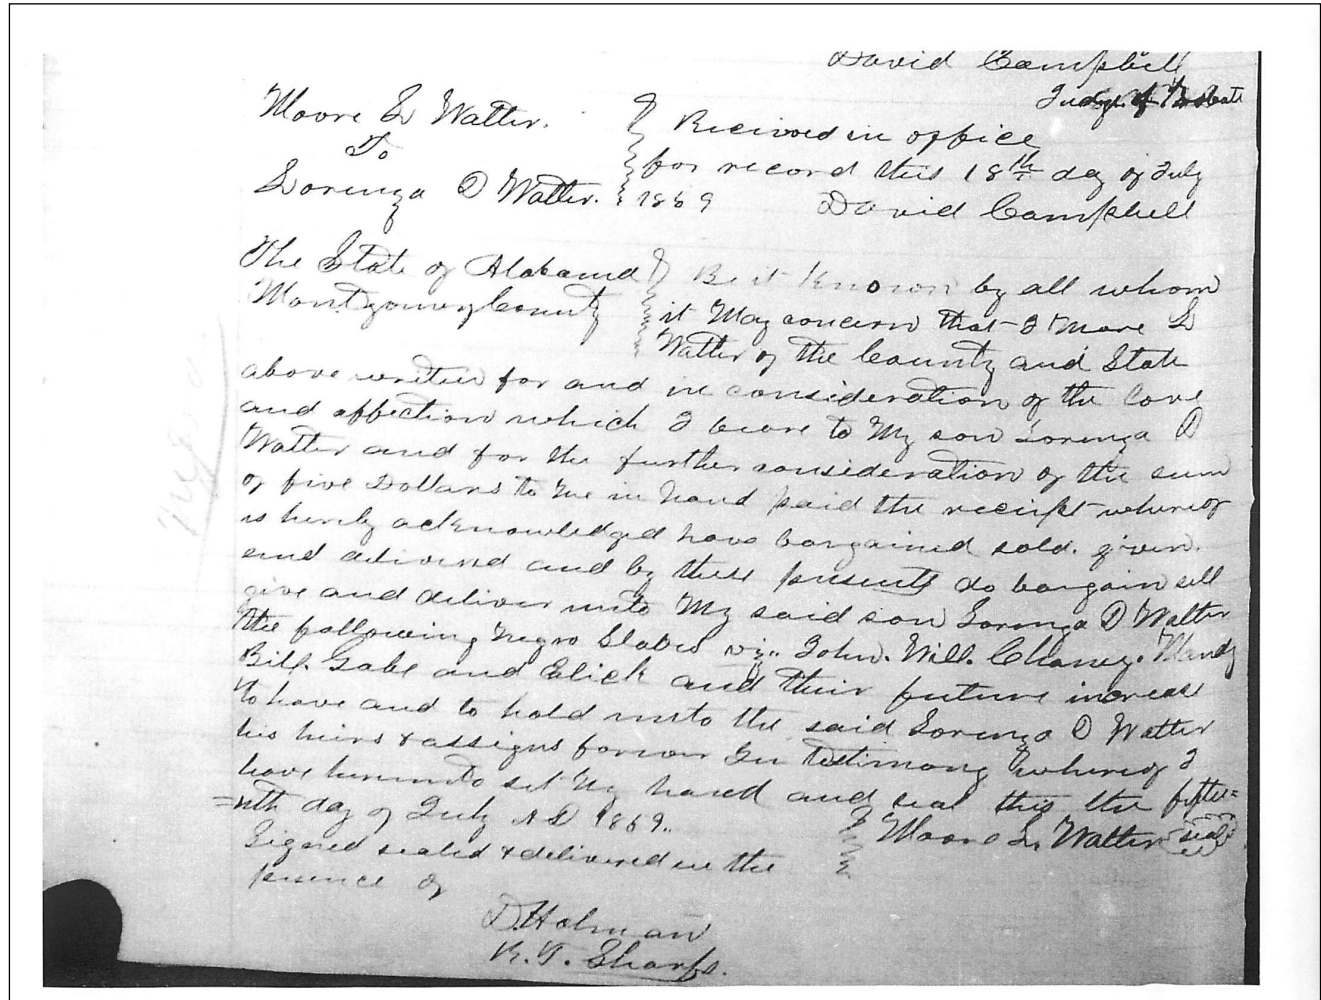 David Campbell
Judge of Probate
Moore L Watter.
To
Lorenza D Watter.
Received in office
for record this 18th day of July
1869 David Campbell
The State of Alabama
Montgomery County
Be it Known by all whom
it May concern that I Moore L
Watter of the County and State
above written for and in consideration of the love
and affection which I beare to My son Lorenza D
Watter and for the further consideration of the sum
of five Dollars to me in hand paid the receipt whereof
is hereby acknowledged have bargained sold. given.
and delivered and by these presents do bargain sell
give and deliver unto My said son Lorenza D Watter
the following Negro Slaves viz.. John. Will. Chaney. Mandy
Bill. Gabe and Elick and their future increase
to have and to hold unto the said Lorenza D Watter
his heirs & assigns forever In testimony whereof I
have hereunto set My hand and seal this the fiftee=
=nth day of July AD 1869..
Moore L. Watter seal
Signed sealed & delivered in the
presence of
D. Holman
R. T. Sharp.